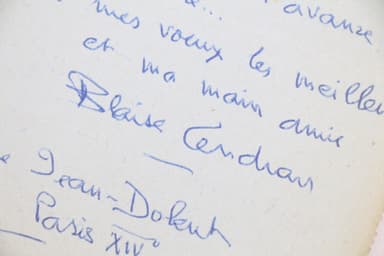 avance
mes vœux les meilleu
et ma main amie
Blaise Cendrars
Jean-Dolent
Paris XIV°